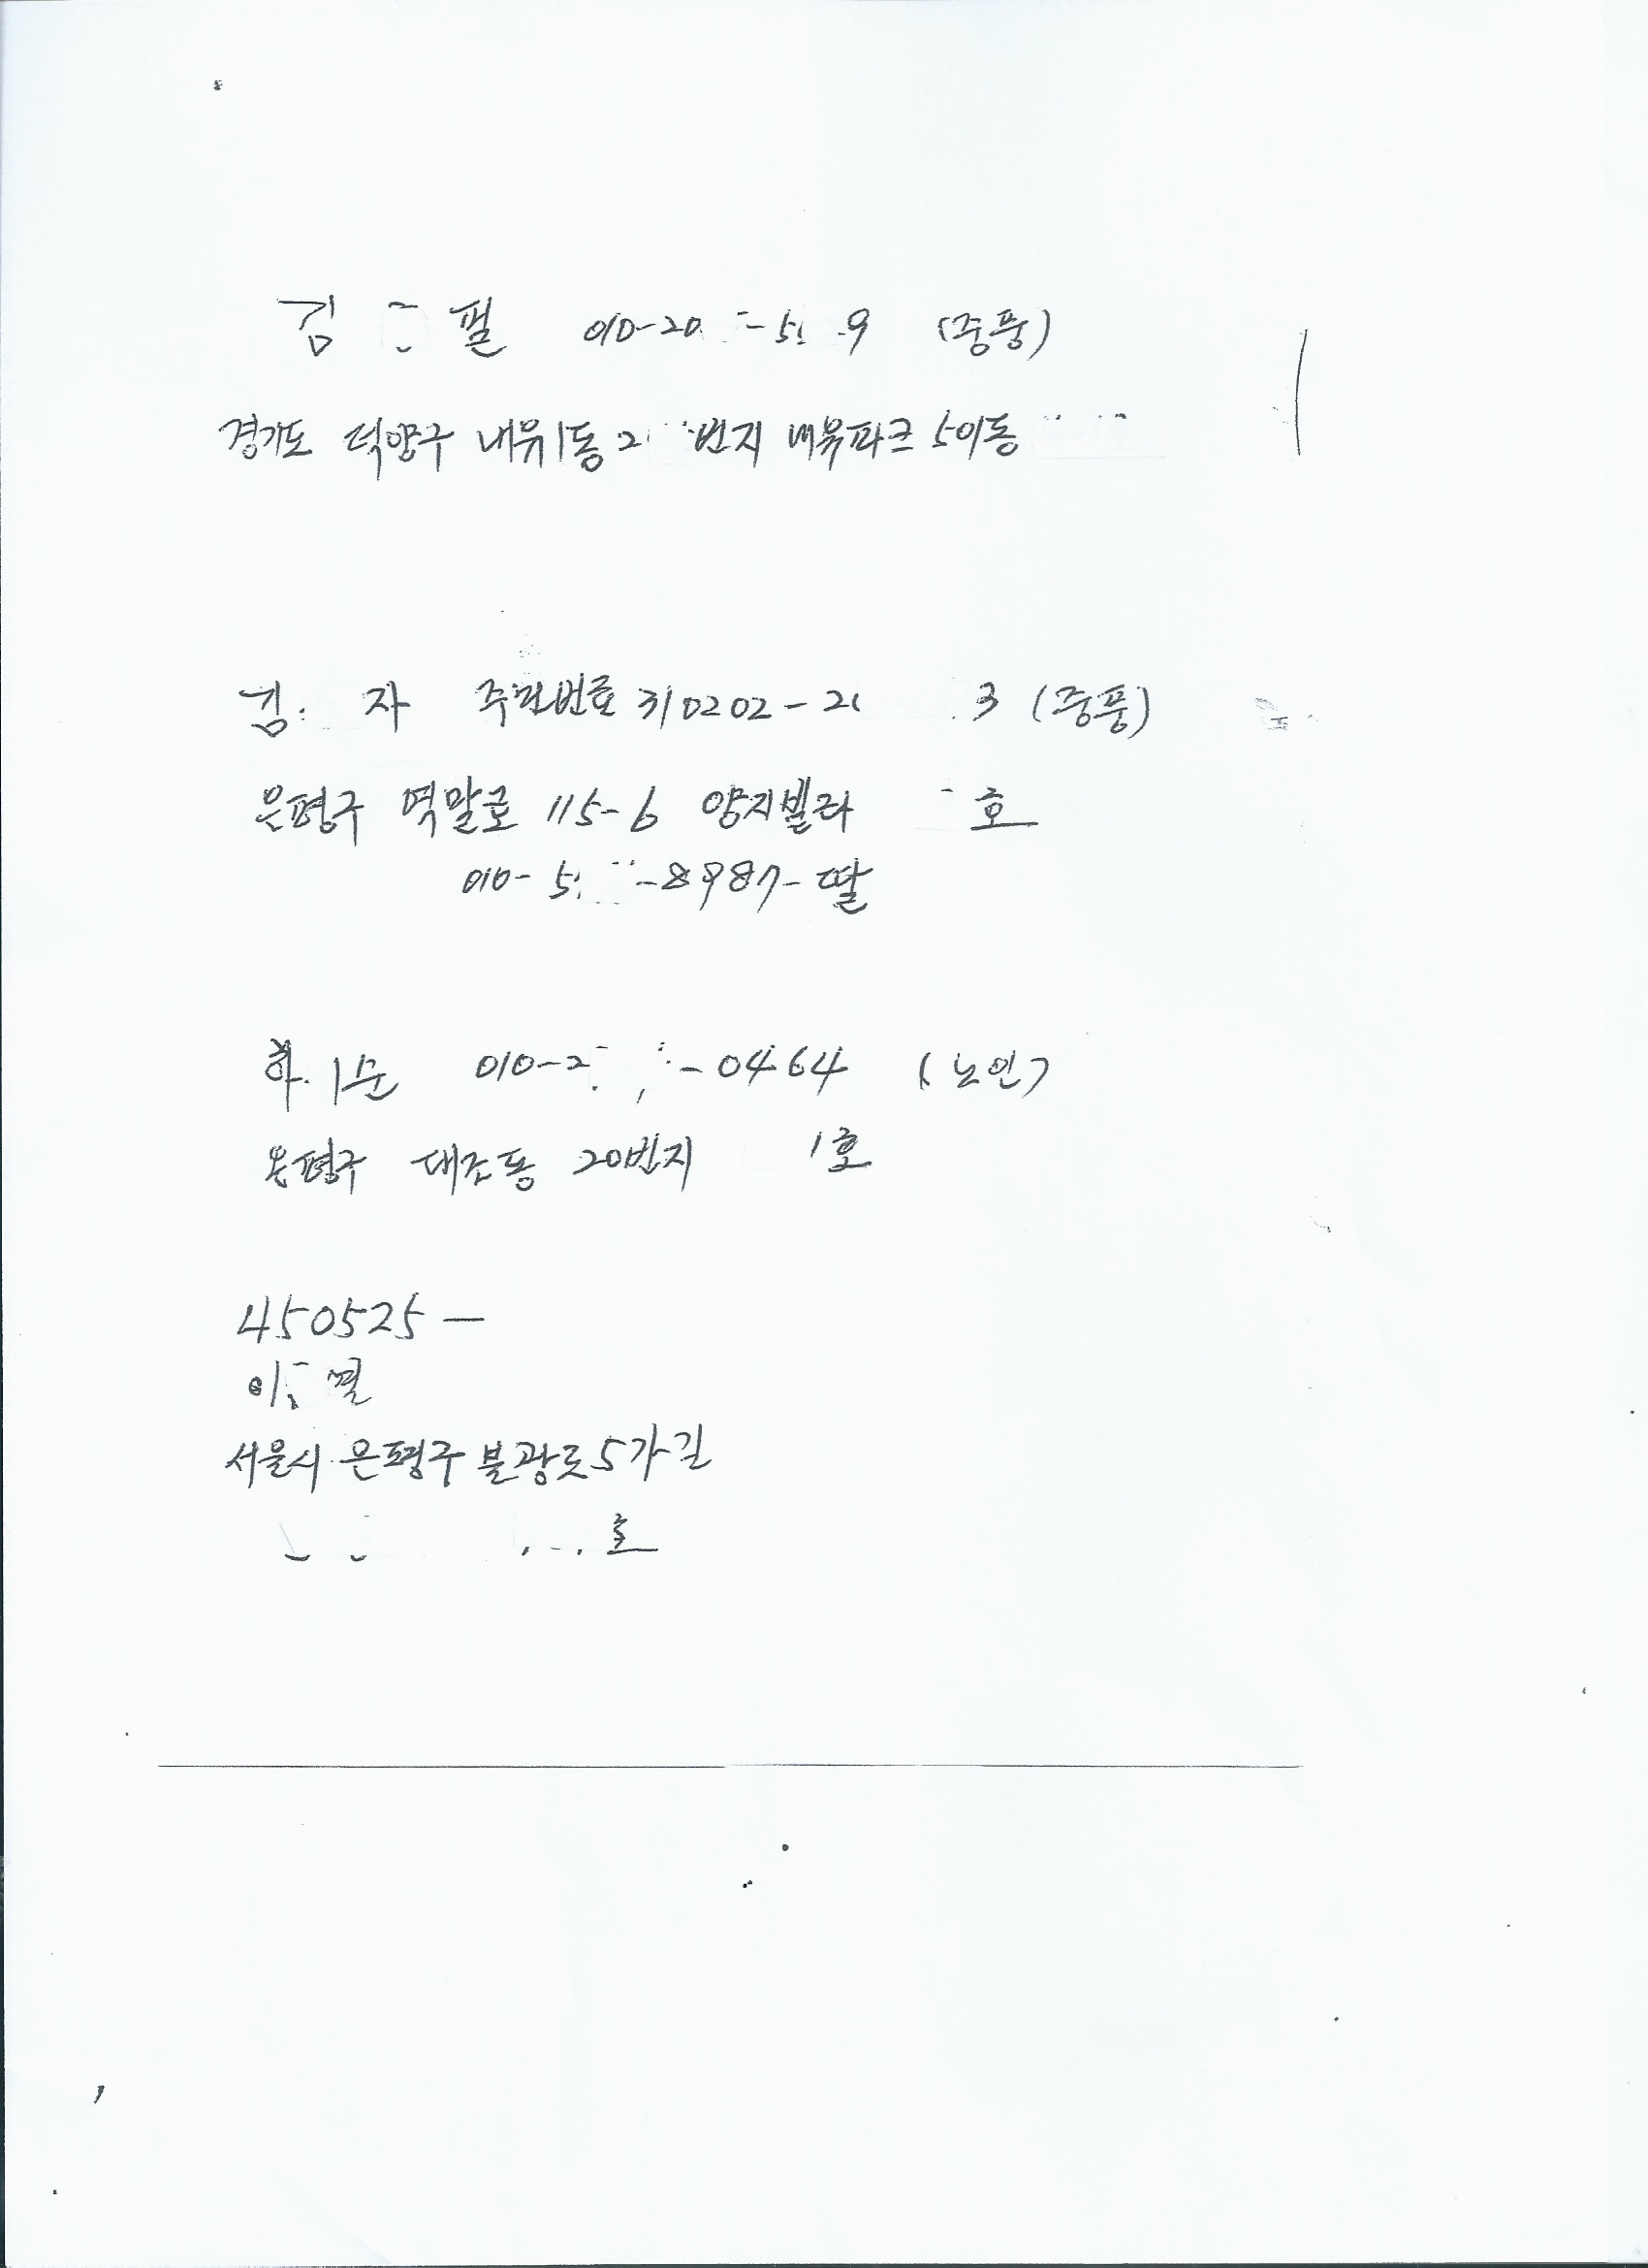 김 필 010-20 - 5 9 (중풍)
경기도 덕양구 내유1동 2 번지 내유파크 501동
김 자 주민번호 310202-21 3 (중풍)
은평구 역말로 115-6 양지빌라 호
010-5 -8987-딸
하 순 010-2 -0464 (노인)
은평구 대조동 20번지 1호
450525-
이 열
서울시 은평구 불광로5가길
호